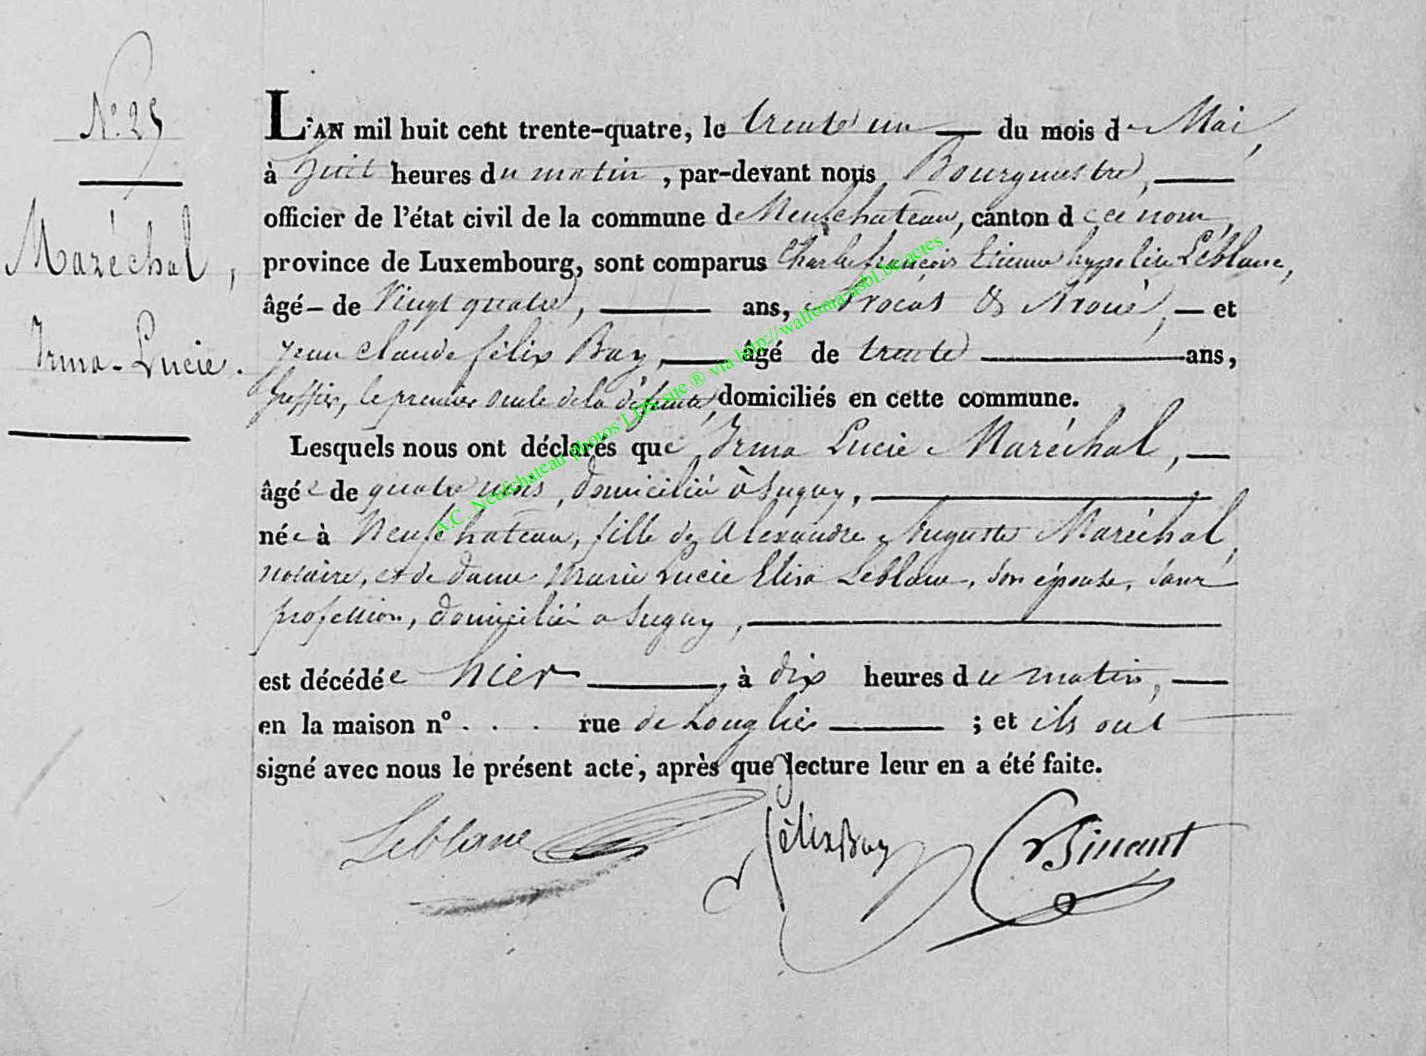 N.° 25
Maréchal,
Irma-Lucie.
L'AN mil huit cent trente-quatre, le trente un du mois de Mai,
à huit heures du matin, par-devant nous Bourgmestre,
officier de l'état civil de la commune de Neufchateau, canton de ce nom,
province de Luxembourg, sont comparus Charles françois Etienne hypolite Leblanc,
âgé de Vingt quatre, ans, Avocat & Avoué, et
Jean Claude félix Bay, âgé de trente ans,
Greffier, le premier oncle de la défunte, domiciliés en cette commune.
Lesquels nous ont déclarés que Irma Lucie Maréchal,
âgée de quatre mois, domiciliée à Sugny,
née à Neufchateau, fille de Alexandre Auguste Maréchal,
notaire, et de dame Marie Lucie Elisa Leblanc, son épouse, sans
profession, domiciliés a Sugny,
est décédée hier à dix heures du matin,
en la maison n° . . . rue de Longlier ; et ils ont
signé avec nous le présent acte, après que lecture leur en a été faite.
Leblanc félix Bay
A.C. Neufchateau photos LDS site ® via http://wallonia.asbl.be/actes